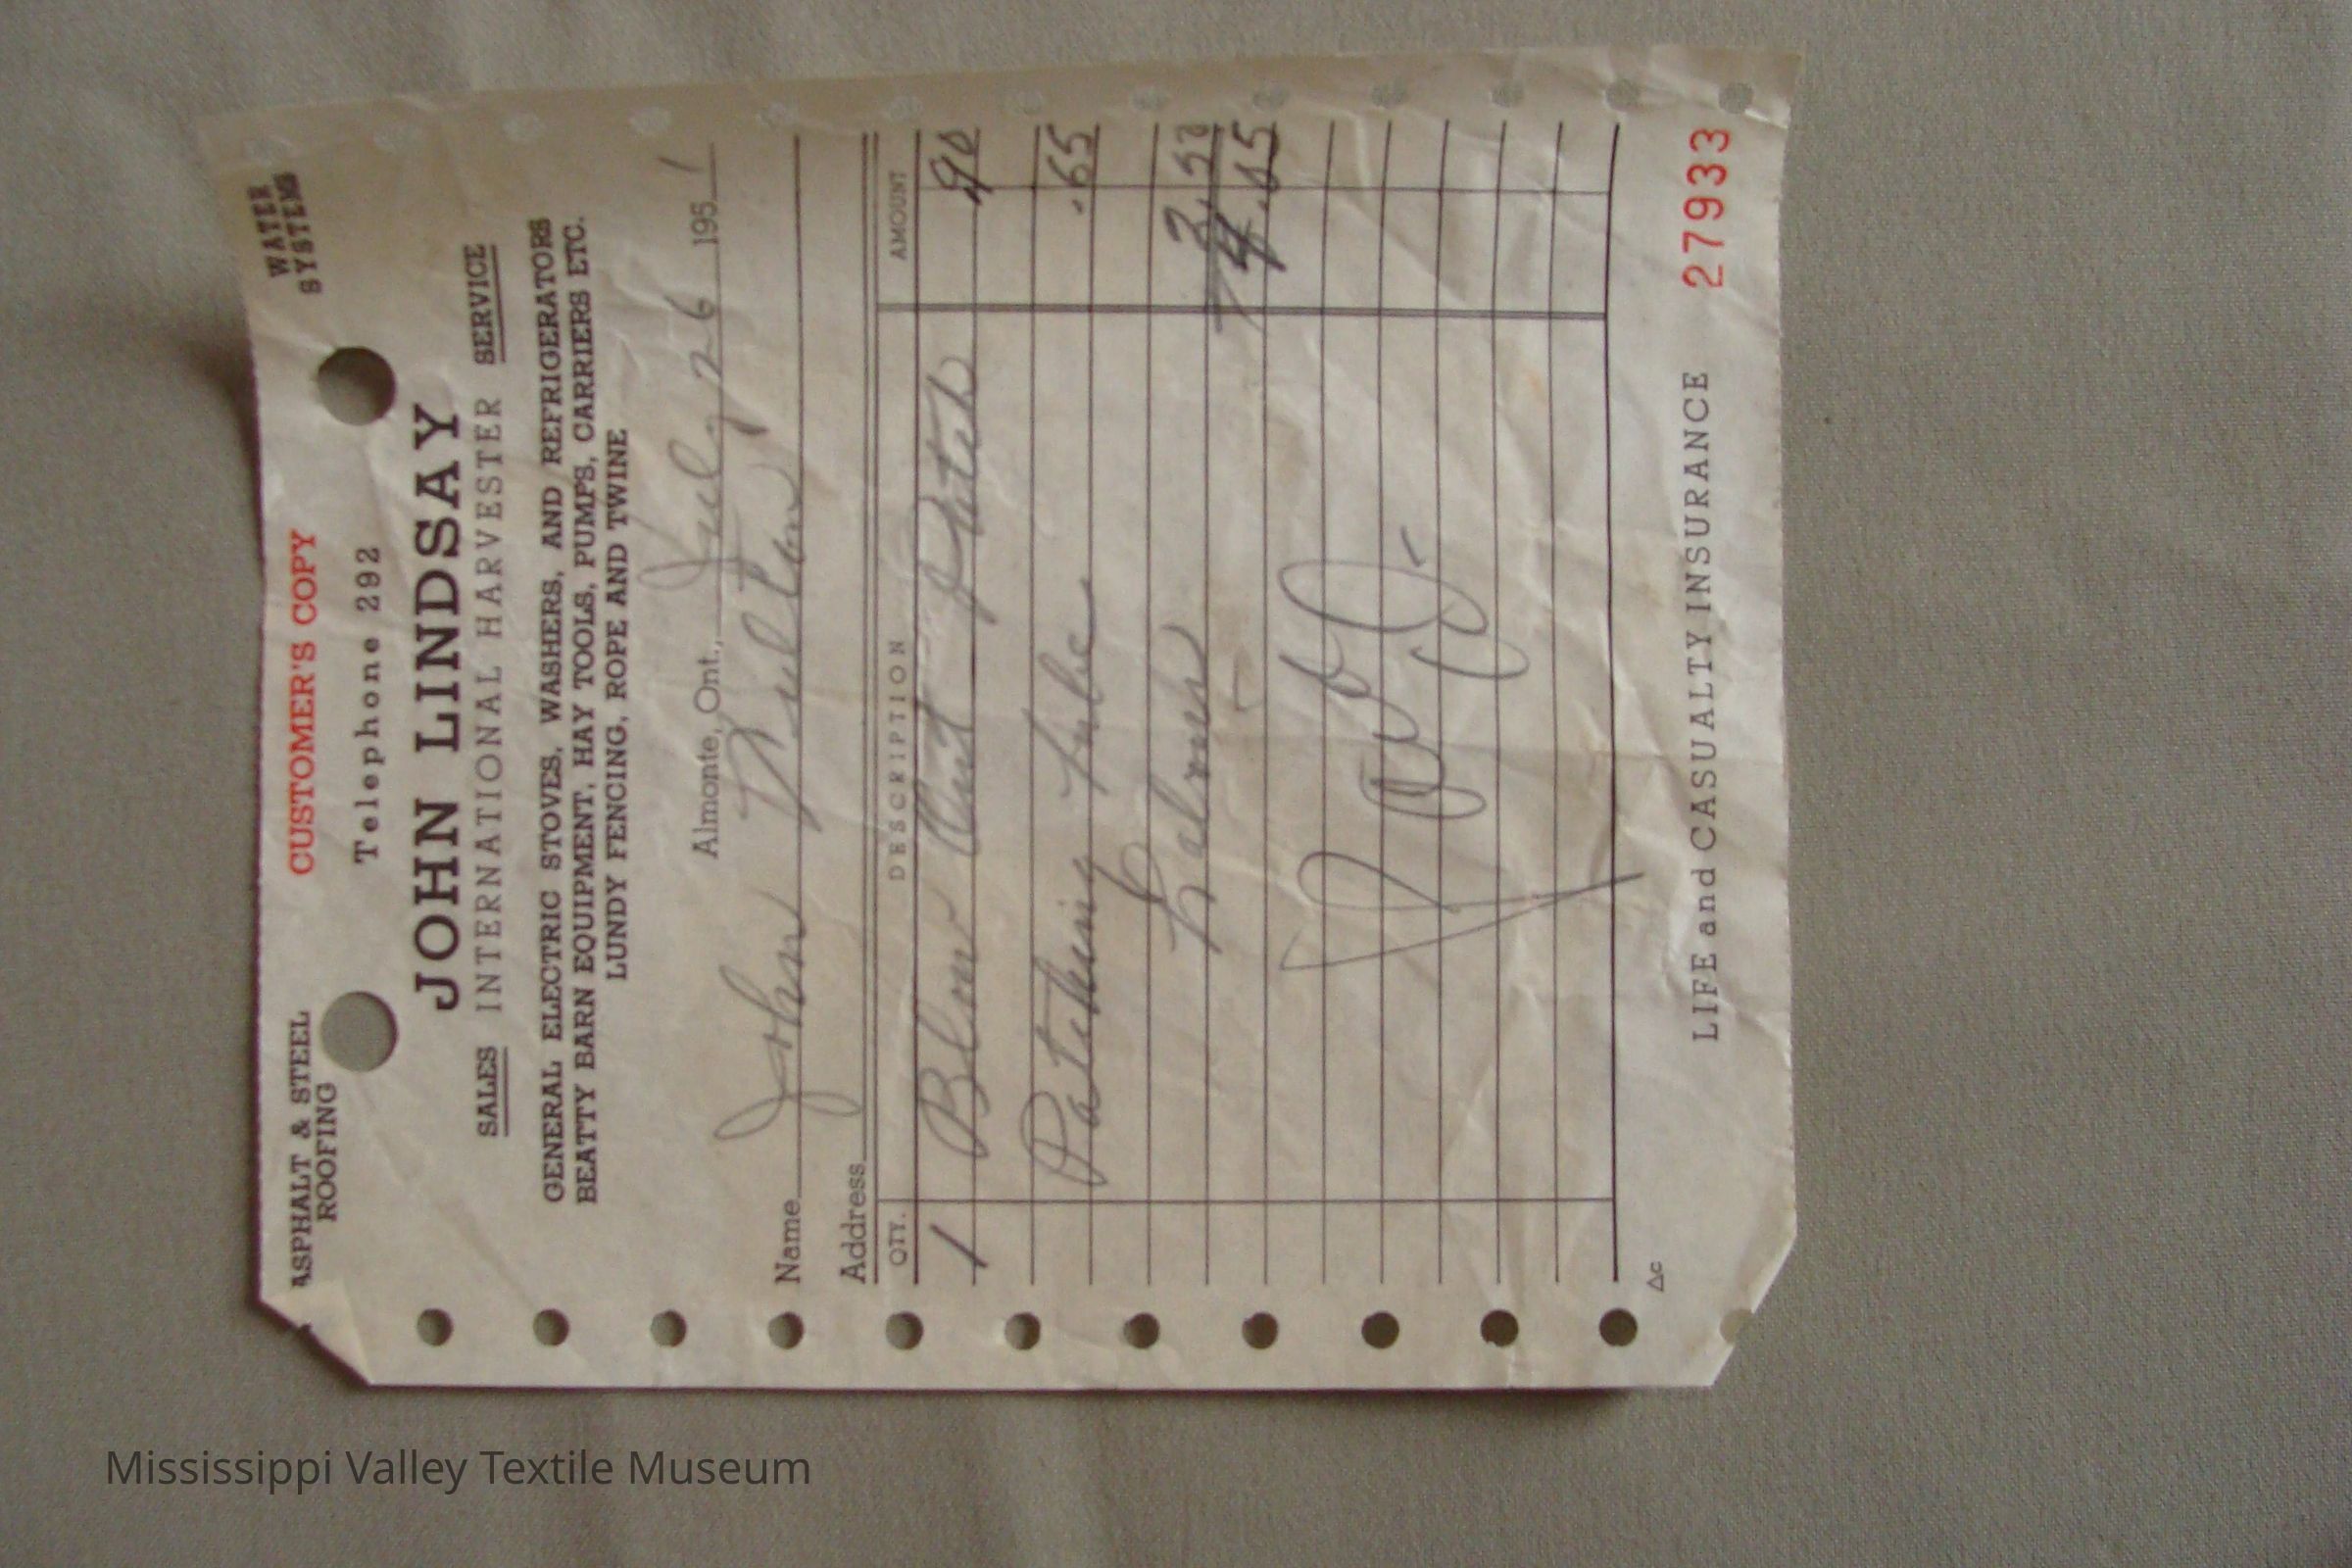 ASPHALT & STEEL
ROOFING
CUSTOMER'S COPY
WATER
SYSTEMS
Telephone 292
JOHN LINDSAY
SALES INTERNATIONAL HARVESTER SERVICE
GENERAL ELECTRIC STOVES, WASHERS, AND REFRIGERATORS
BEATTY BARN EQUIPMENT, HAY TOOLS, PUMPS, CARRIERS ETC.
LUNDY FENCING, ROPE AND TWINE
Almonte, Ont., July 26 1951
Name John
Address
QTY. DESCRIPTION AMOUNT
1 Blow Out Patch .90
Patching Tube .65
Labour
4.05
Paid
LIFE and CASUALTY INSURANCE 27933
Mississippi Valley Textile Museum